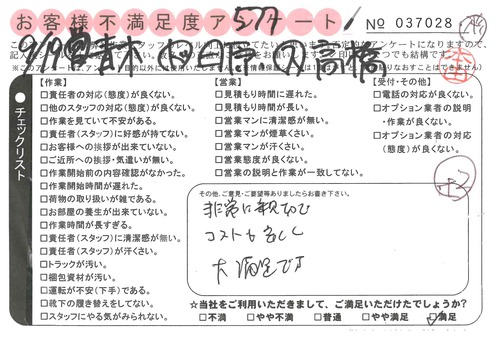 お客様不満足度アンケート
577
No 037028
9/9 青木 相模原 高橋
チェックリスト
【作業】
□責任者の対応(態度)が良くない。
□他のスタッフの対応(態度)が良くない。
□作業を見ていて不安がある。
□責任者(スタッフ)に好感が持てない。
□お客様への挨拶が出来ていない。
□ご近所への挨拶・気遣いが無い。
□作業開始前の内容確認がなかった。
□作業開始時間が遅れた。
□荷物の取り扱いが雑である。
□お部屋の養生が出来ていない。
□作業時間が長すぎる。
□責任者(スタッフ)に清潔感が無い。
□責任者(スタッフ)が汗くさい。
□トラックが汚い。
□梱包資材が汚い。
□運転が不安(下手)である。
□靴下の履き替えをしてない。
□スタッフにやる気がみられない。
【営業】
□見積もり時間に遅れた。
□見積もり時間が長い。
□営業マンに清潔感が無い。
□営業マンが煙草くさい。
□営業マンが汗くさい。
□営業態度が良くない。
□営業の説明と作業が一致してない。
【受付・その他】
□電話の対応が良くない。
□オプション業者の説明
・作業が良くない。
□オプション業者の対応
(態度)が良くない。
その他、ご意見・ご要望等ありましたらお書き下さい。
非常に親切で
コストも安く
大満足です
☆当社をご利用いただきまして、ご満足いただけたでしょうか?
□不満 □やや不満 □普通 □やや満足 □満足